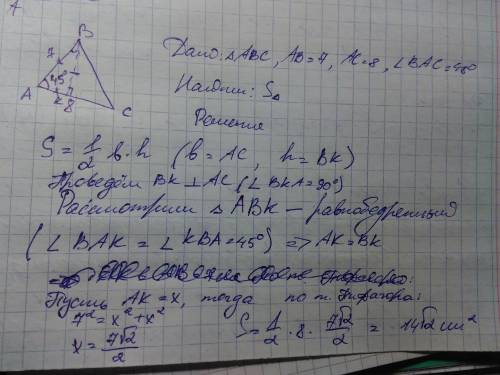 B
7
45°
A
К
8
C
Дано: △ABC, AB=7, AC=8, ∠BAC=45°
Найти: S△
Решение
S = 1/2 b·h (b = AC, h = BK)
Проведём BK ⊥ AC (∠BKA=90°)
Рассмотрим △ ABK – равнобедренный
(∠BAK = ∠KBA=45°) => AK=BK
Пусть AK=x, тогда по т. Пифагора:
7² = x² + x²
x = 7√2/2
S = 1/2 · 8 · 7√2/2 = 14√2 см²